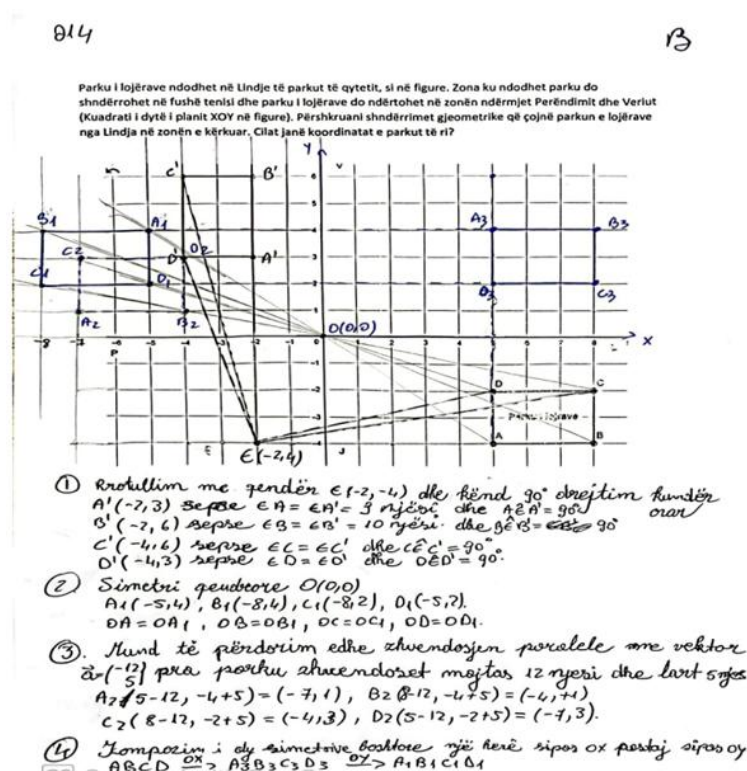 214
B
Parku i lojërave ndodhet në Lindje të parkut të qytetit, si në figure. Zona ku ndodhet parku do
shndërrohet në fushë tenisi dhe parku i lojërave do ndërtohet në zonën ndërmjet Perëndimit dhe Veriut
(Kuadrati i dytë i planit XOY në figure). Përshkruani shndërrimet gjeometrike që çojnë parkun e lojërave
nga Lindja në zonën e kërkuar. Cilat janë koordinatat e parkut të ri?
Y
V
C' B'
6
5
B1 A1 4 A3 B3
C2 D' D2 3 A'
C1 D1 2 D3 C3
A2 B2 1
O(0,0)
-8 -7 -6 -5 -4 -3 -2 -1 0 1 2 3 4 5 6 7 8 X
P
-1
-2 D C
-3 Parku i lojrave
E J A B
E(-2,4)
① Rrotullim me qendër E(-2,-4) dhe kënd 90° drejtim kundër
orar
A'(-2,3) sepse EA = EA' = 9 njësi dhe AÊA' = 90°
B'(-2,6) sepse EB = EB' = 10 njësi. dhe BÊB' = 90°
C'(-4,6) sepse EC = EC' dhe CÊC' = 90°
D'(-4,3) sepse ED = ED' dhe DÊD' = 90°.
② Simetri qendrore O(0,0)
A1(-5,4), B1(-8,4), C1(-8,2), D1(-5,2).
OA = OA1, OB = OB1, OC = OC1, OD = OD1.
③. Mund të përdorim edhe zhvendosjen paralele me vektor
a(-12 5) pra parku zhvendoset majtas 12 njesi dhe lart 5 njes
A2(5-12, -4+5) = (-7,1), B2(8-12, -4+5) = (-4,+1)
C2(8-12, -2+5) = (-4,3), D2(5-12, -2+5) = (-7,3).
④ Kompozim i dy simetrive boshtore një herë sipas ox pastaj sipas oy
ABCD ox> A3B3C3D3 oy> A1B1C1D1